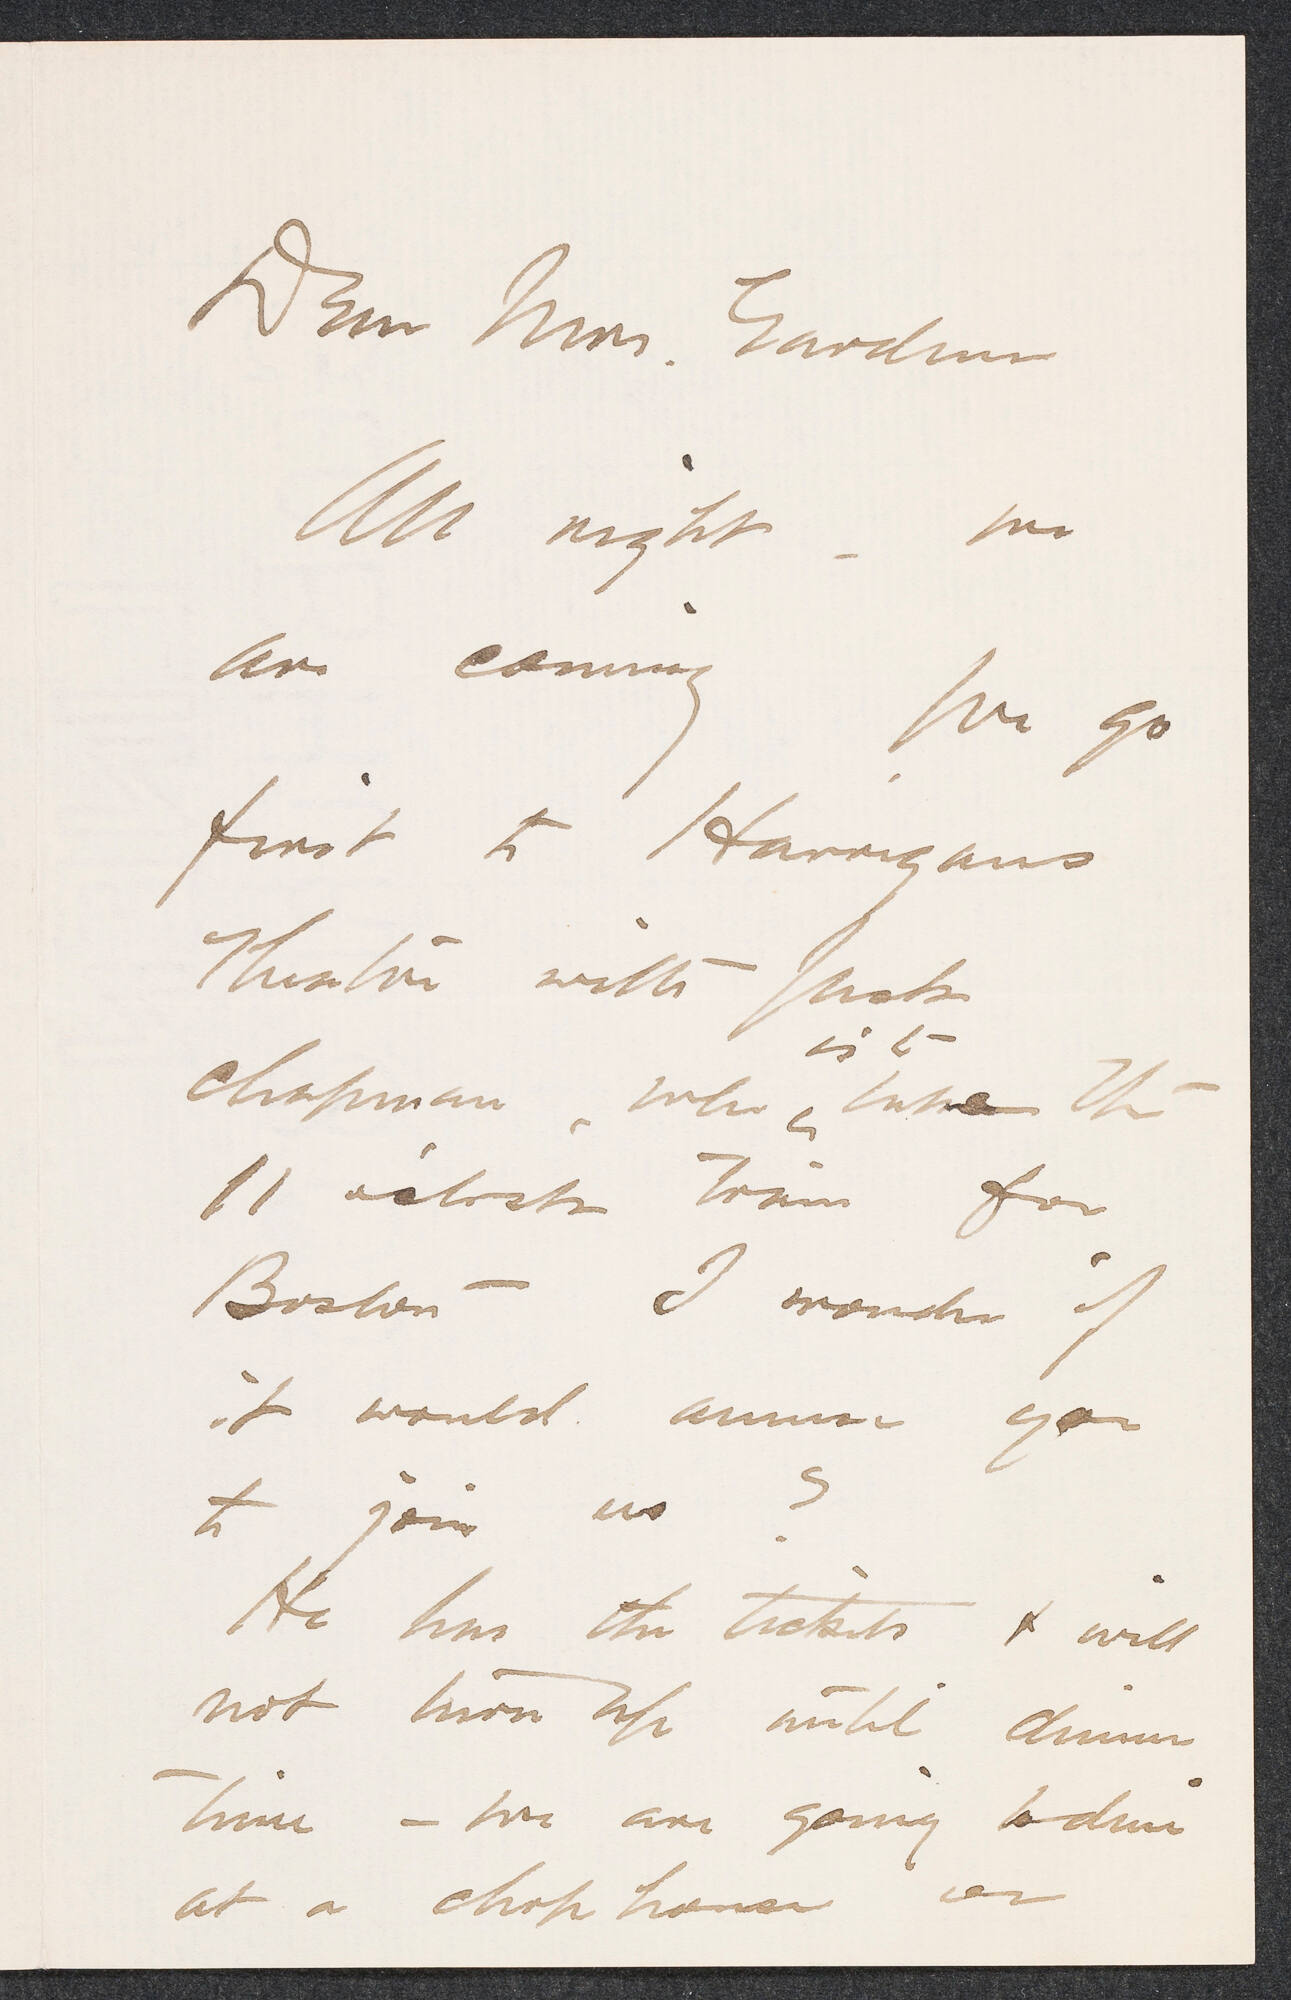 Dear Mrs. Gardner
All right - we
are coming We go
first to Harrigans
Theatre with Jack
Chapman, who is to take the
11 o'clock train for
Boston - I wonder if
it would amuse you
to join us ?
He has the tickets & will
not turn up until dinner
time - we are going to dine
at a chop house or